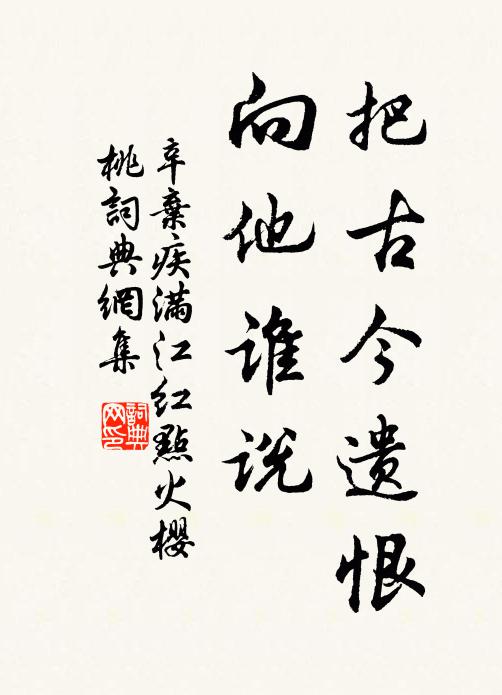 把古今遗恨
向他谁说
辛棄疾满江红點火樱
桃詞典網集
詞典网印